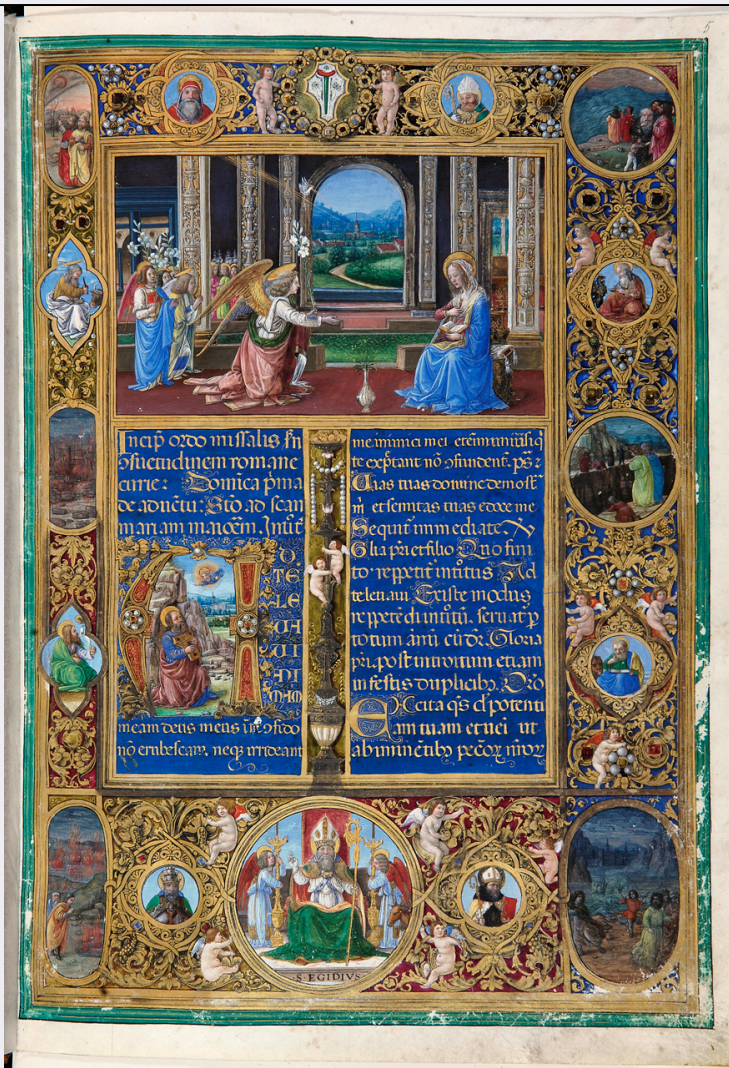 5
Incip̄ ordo missalis
ꝯsuetudinem romane
curie: Domica pīma
de aduētu: Stō ad scan
mariam maiorē. Introit
A
TE
LE
VA
VI
NI
MAM
meam deus meus ī te ꝯfido
nō erubescam, neqꝫ irrideant
me inimici mei etenim
te expectant nō ꝯfundent. ps:
Uias tuas domine demost
m̄ et semitas tuas edoce me
Sequit immediate V
Glia pri et filio Quo fini
to repetit introitus Ad
te leuaui Et iste modus
repetēdi introitū. seruat p
totum annū cū dr̄ Gloria
pri. post introitum etiam
in festis duplicibꝫ. Oro
Excita qs potenti
am tuam et uei ut
ab imminētibꝫ pecor nror
S EGIDIVS